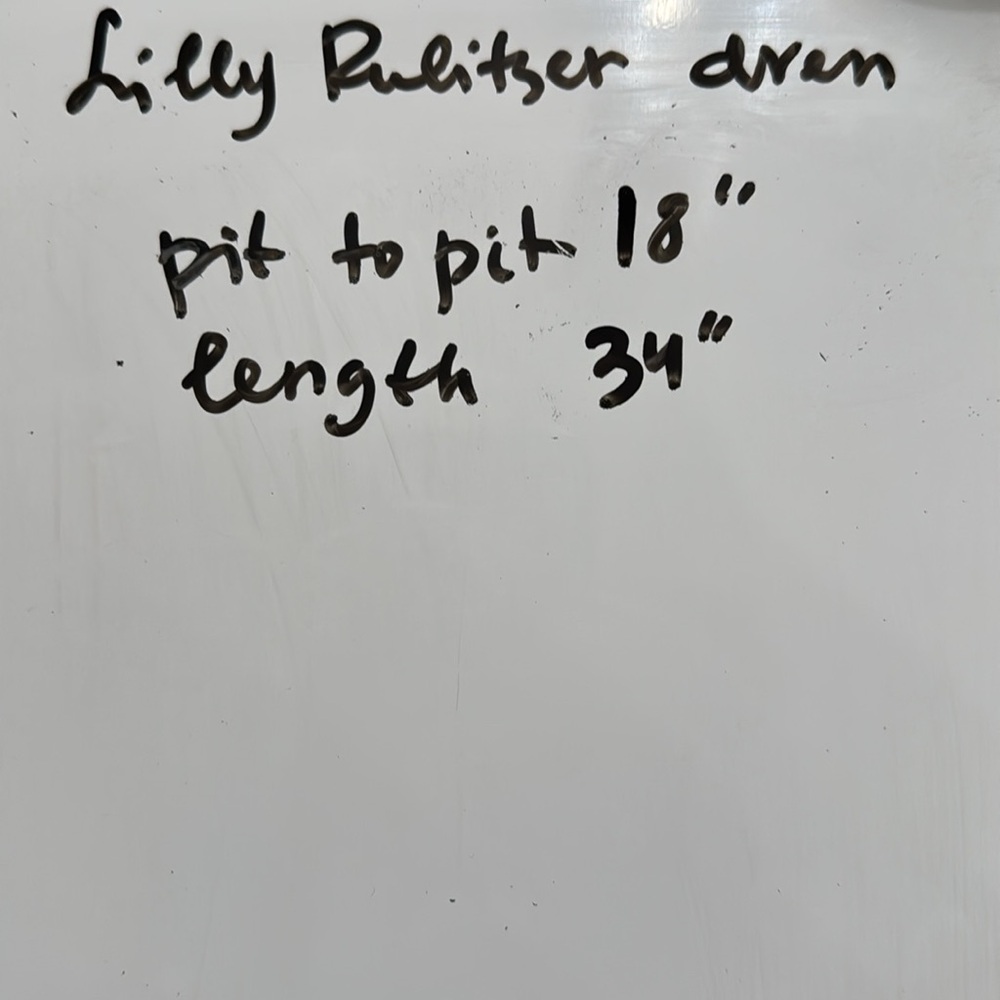 Lilly Pulitzer dress
pit to pit 18"
length 34"